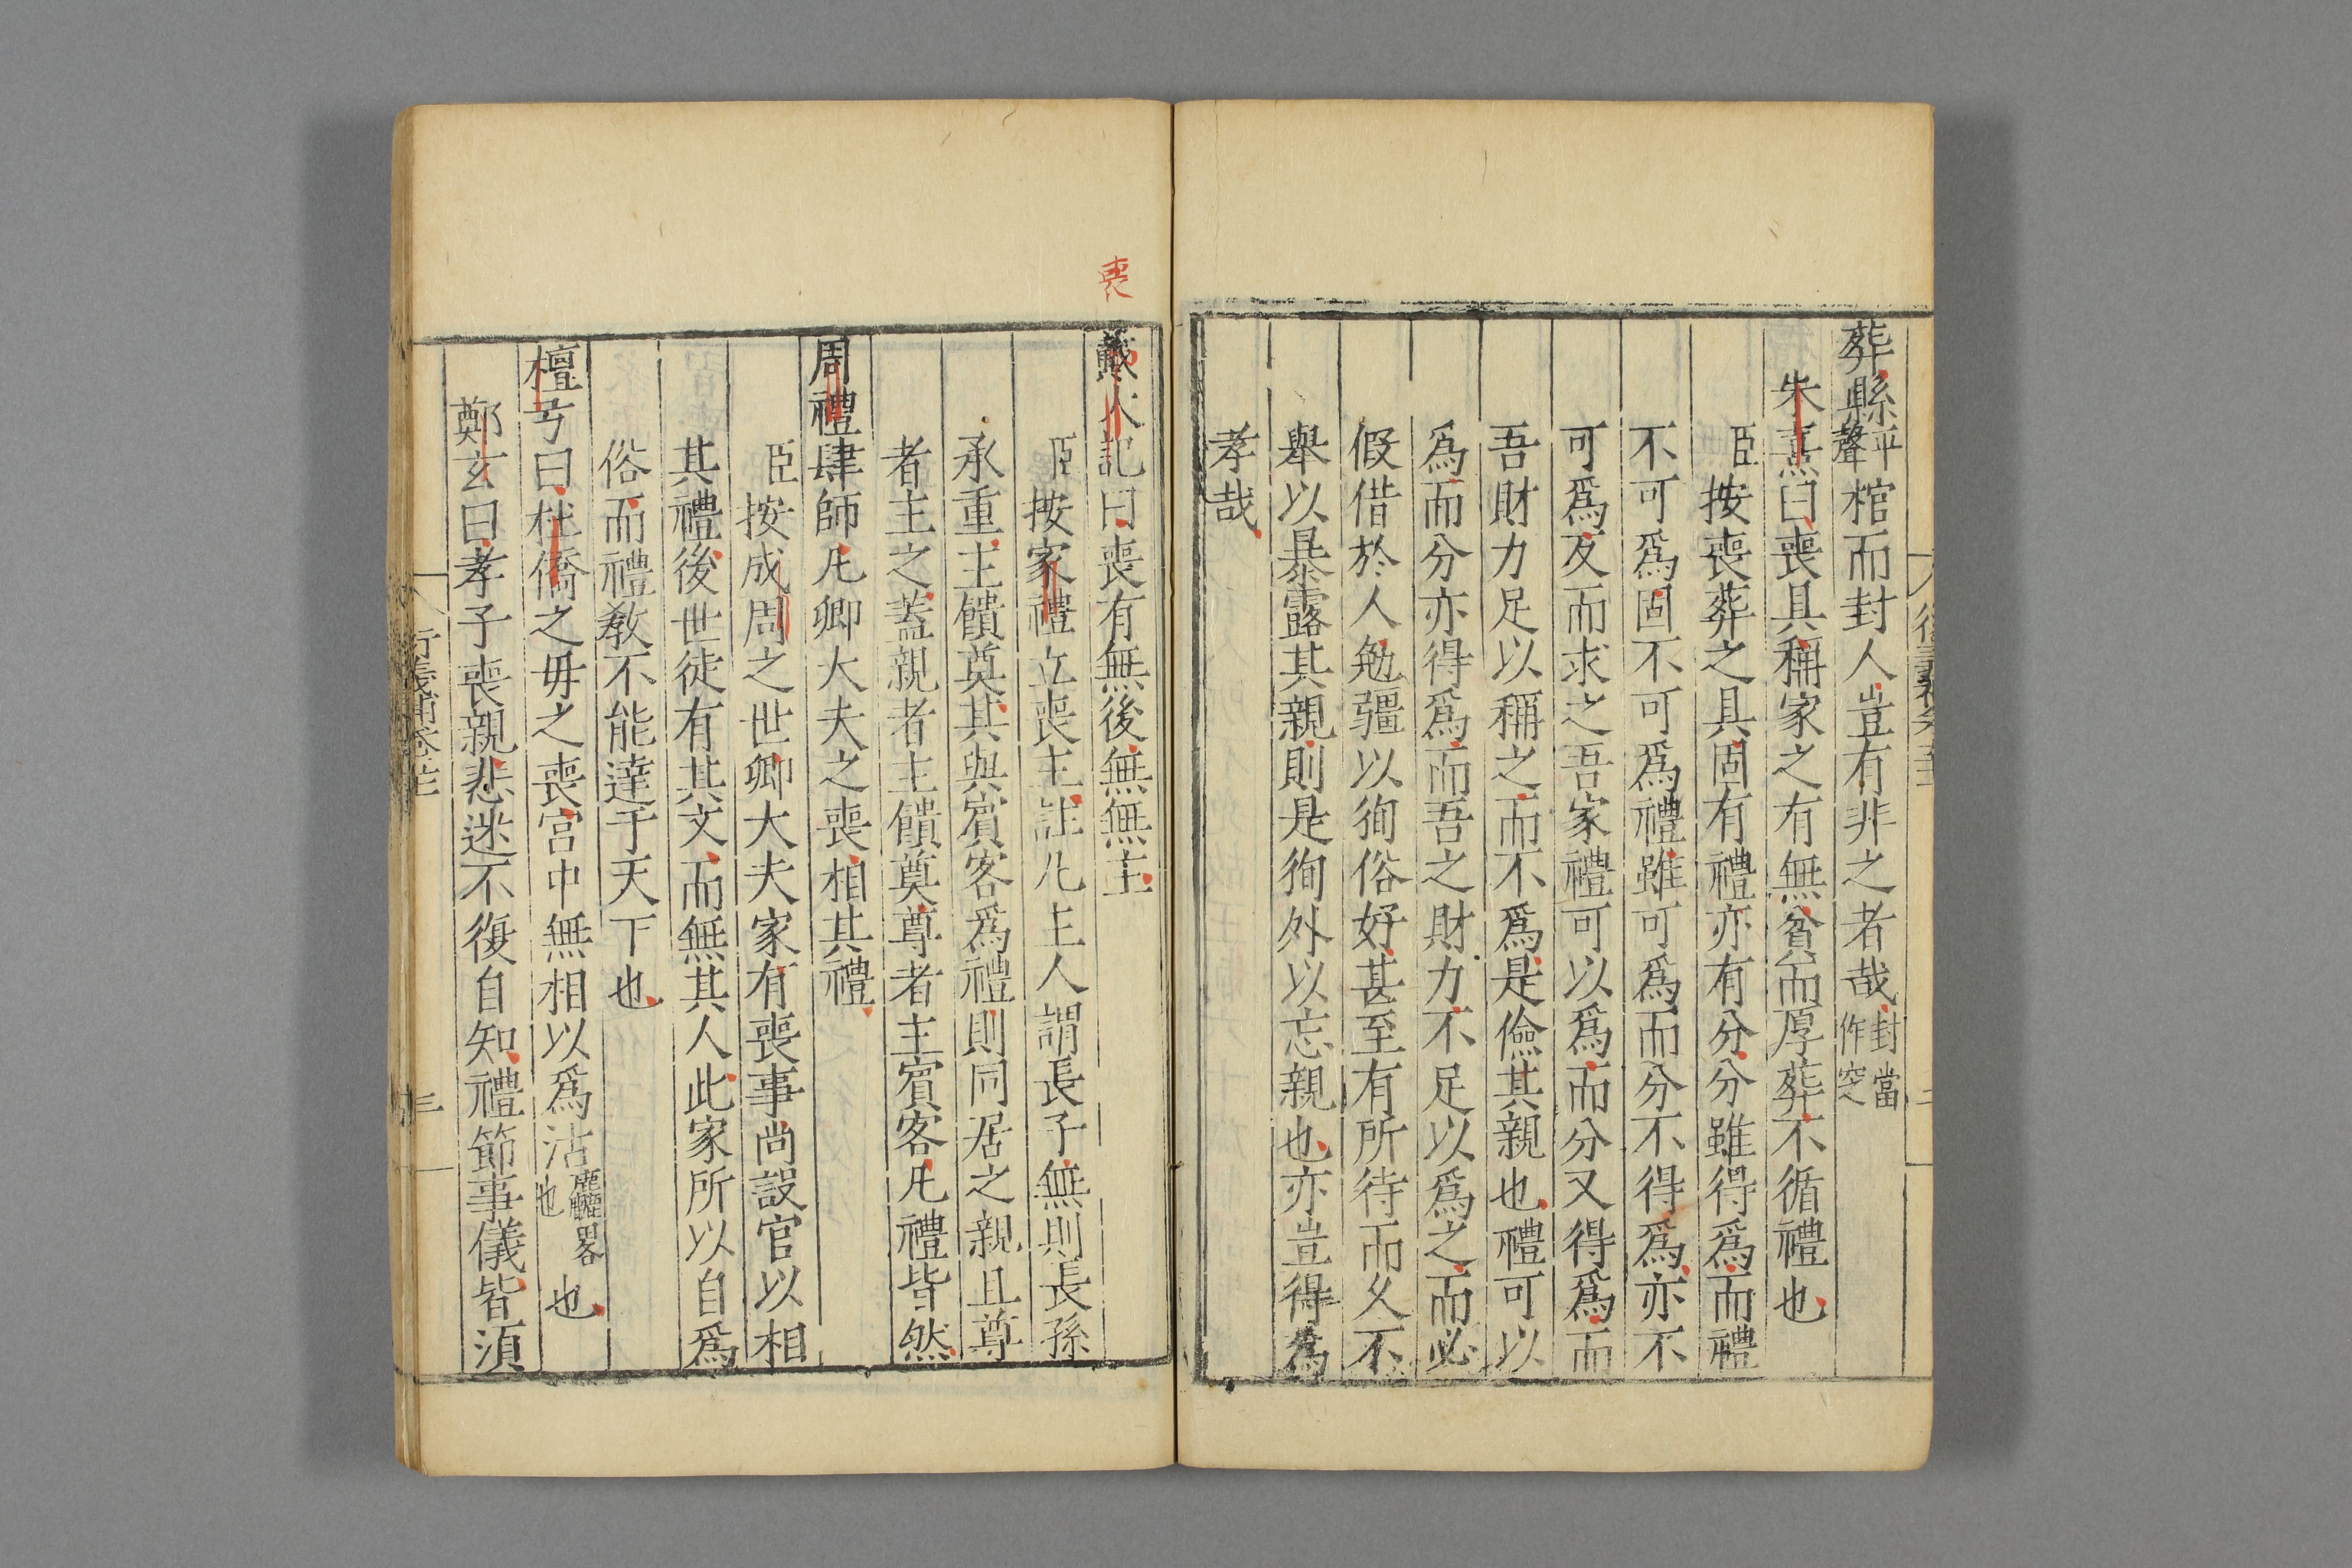 葬縣平聲棺而封人豈有非之者哉封當作窆
朱熹曰喪具稱家之有無貧而厚葬不循禮也
臣按喪葬之具固有禮亦有分分雖得爲而禮
不可爲固不可爲禮雖可爲而分不得爲亦不
可爲反而求之吾家禮可以爲而分又得爲而
吾財力足以稱之而不爲是儉其親也禮可以
爲而分亦得爲而吾之財力不足以爲之而必
假借於人勉彊以徇俗好甚至有所待而久不
舉以暴露其親則是徇外以忘親也亦豈得爲
孝哉
喪
記曰喪有無後無無主
臣按家禮立喪主註凡主人謂長子無則長孫
承重主饋奠其與賓客爲禮則同居之親且尊
者主之蓋親者主饋奠尊者主賓客凡禮皆然
周禮肆師凡卿大夫之喪相其禮
臣按成周之世卿大夫家有喪事尚設官以相
其禮後世徒有其文而無其人此家所以自爲
俗而禮敎不能達于天下也
檀弓曰杜僑之毋之喪宮中無相以爲沽麤畧也也
鄭玄曰孝子喪親悲迷不復自知禮節事儀皆須
三